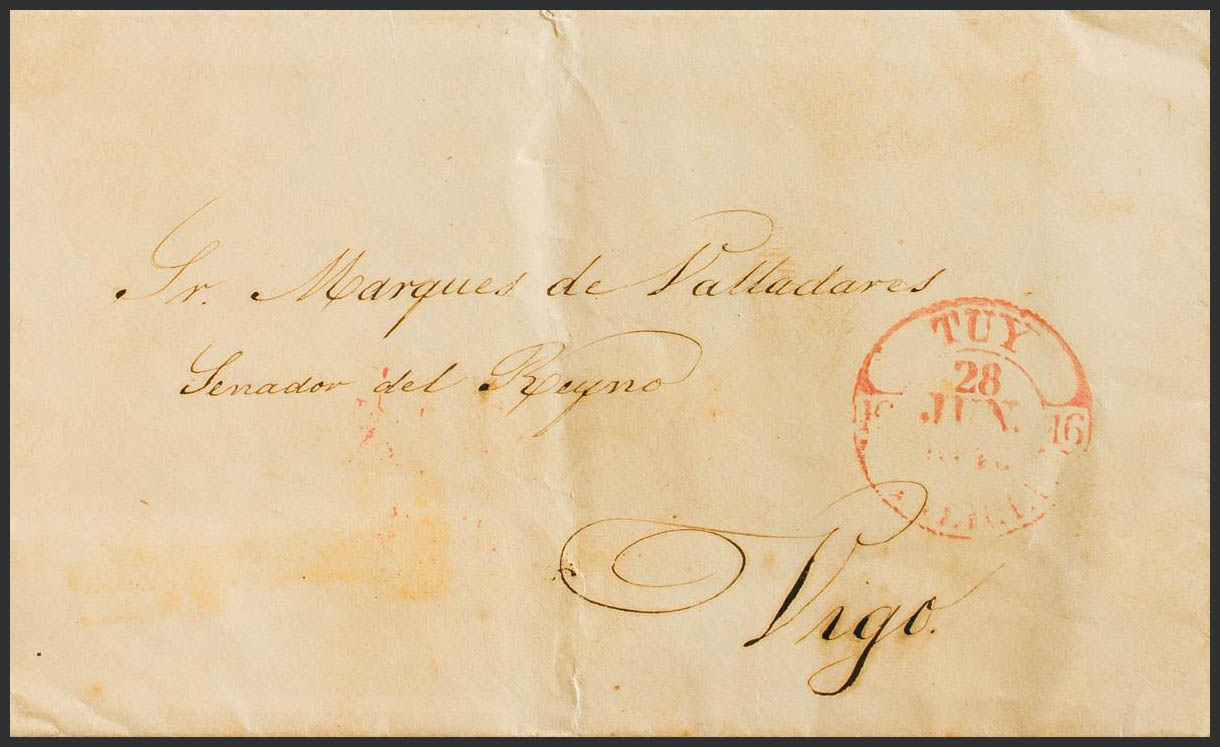 Sr. Marques de Valladares
Senador del Reyno
Vigo.
TUY
28
JUN.
16